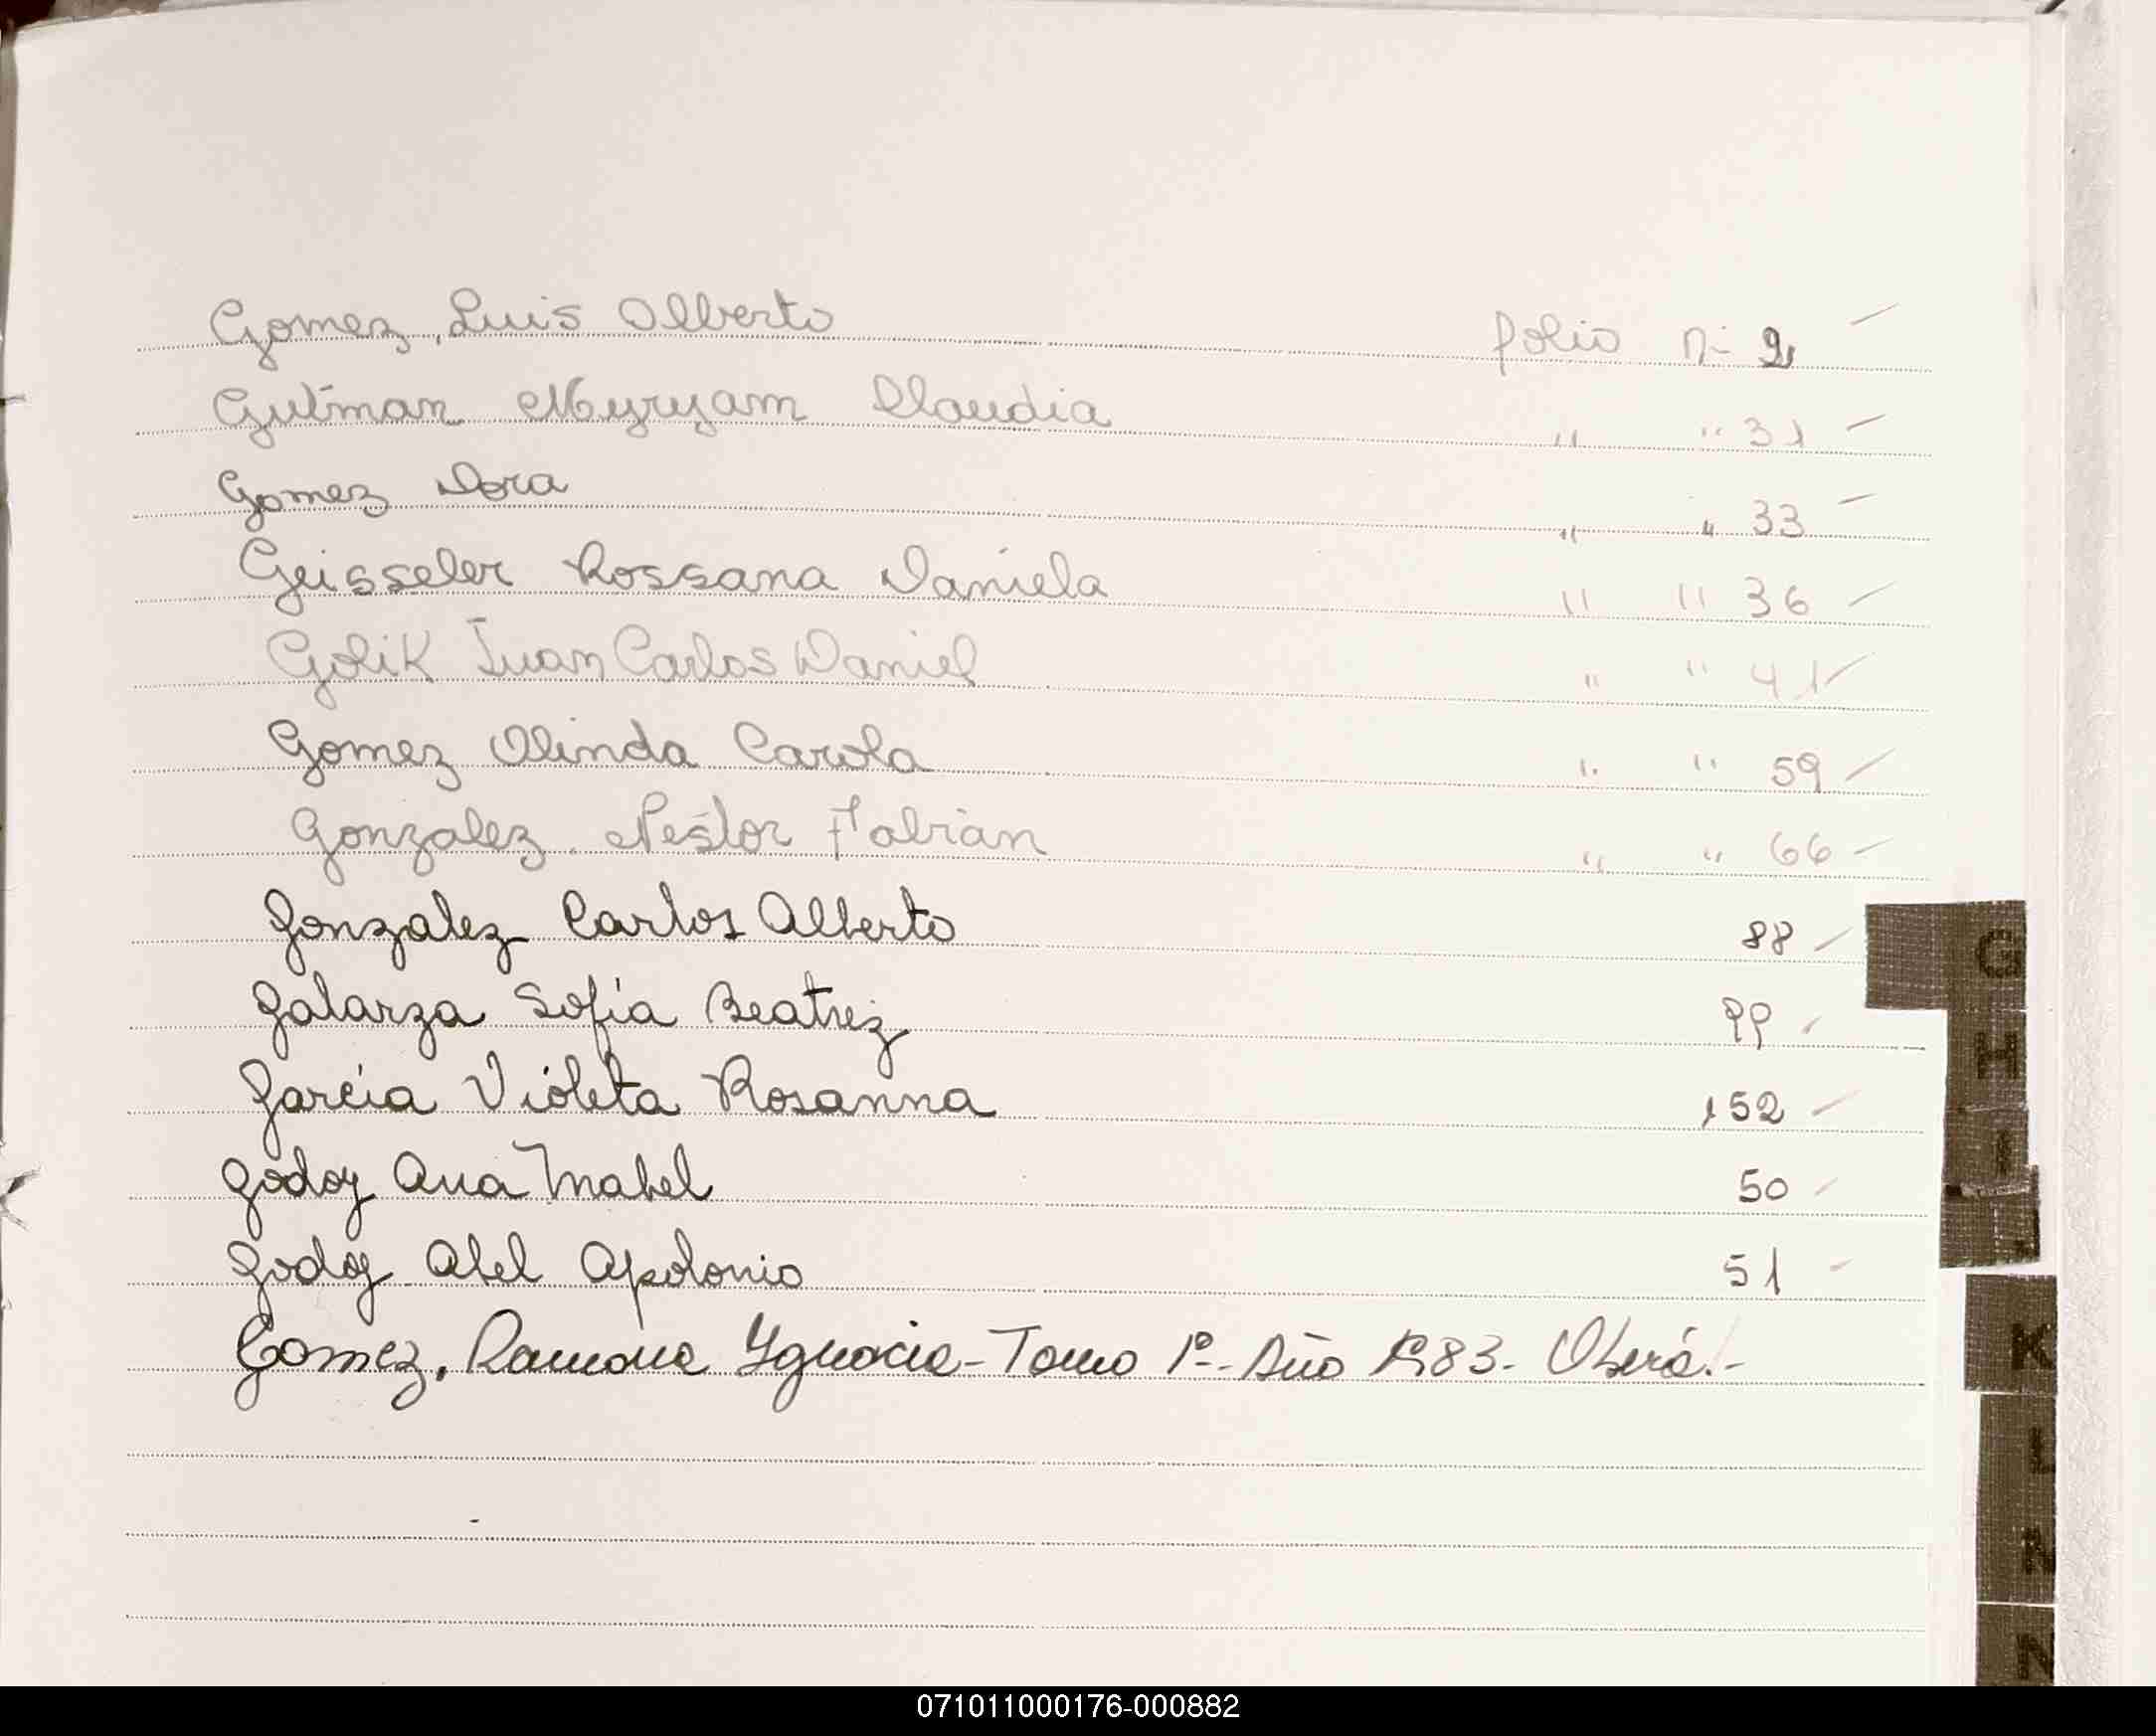 Gomez, Luis Alberto folio n- 2
Gutman Myryam Claudia " " 31
Gomez Dora " " 33
Geisseler Rossana Daniela " " 36
Golik Juan Carlos Daniel " " 41
Gomez Olinda Carola " " 59
Gonzalez Nestor Fabian " " 66
Gonzalez Carlos Alberto 88
Galarza Sofia Beatriz 99
García Violeta Rosanna 152
Godoy Ana Mabel 50
Godoy Abel Apolonio 51
Gomez, Ramona Ygnacia - Tomo 1º - Año 1983 - Oberá.-
G
H
I
J
K
L
N
N
071011000176-000882